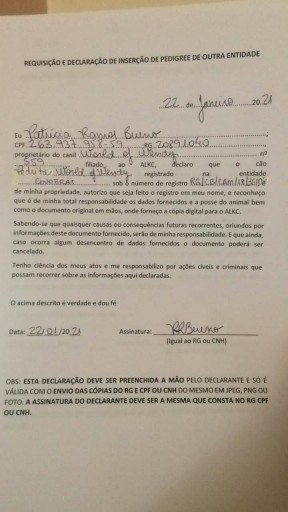 REQUISIÇÃO E DECLARAÇÃO DE INSERÇÃO DE PEDIGREE DE OUTRA ENTIDADE
22 de Janeiro 2021
Eu Patricia Ramos Bueno
CPF 263.937.958-59 RG 20891040
proprietário do canil World of Wendy nº
959 filiado ao ALKC, declaro que o cão
World of Wendy registrado na entidade
sob o número de registro
de minha propriedade, autorizo que seja feito o registro em meu nome, e reconheço
que é de minha total responsabilidade os dados fornecidos e a posse do animal bem
como o documento original em mãos, onde forneço a cópia digital para o ALKC.
Sabendo-se que quaisquer causas ou consequências futuras recorrentes, oriundos por
informações deste documento fornecido, serão de minha responsabilidade. E que ainda,
caso ocorra algum desencontro de dados fornecidos o documento poderá ser
cancelado.
Tenho ciência dos meus atos e me responsabilizo por ações cíveis e criminais que
possam recorrer sobre as informações aqui declaradas.
O acima descrito é verdade e dou fé
Data: 22/01/2021 Assinatura: Bueno
(Igual ao RG ou CNH)
OBS: ESTA DECLARAÇÃO DEVE SER PREENCHIDA A MÃO PELO DECLARANTE E SÓ É
VÁLIDA COM O ENVIO DAS CÓPIAS DO RG E CPF OU CNH DO MESMO EM JPEG, PNG OU
FOTO. A ASSINATURA DO DECLARANTE DEVE SER A MESMA QUE CONSTA NO RG CPF
OU CNH.